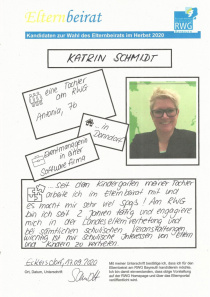 Elternbeirat
RWG
Kandidaten zur Wahl des Elternbeirats im Herbst 2020
KATRIN SCHMIDT
eine Tochter
am RWG
Antonia, 7b
in
Donndorf
Eventmanagerin
in einer
Software Firma
... seit dem Kindergarten meiner Tochter
arbeite ich im Elternbeirat mit und
es macht mir sehr viel Spaß! Am RWG
bin ich seit 2 Jahren tätig und engagiere
mich in der Landeselternvertretung und
bei sämtlichen schulischen Veranstaltungen.
Wichtig ist mir schulische Interessen von Eltern
und Kindern zu vertreten.
Eckersdorf, 2020
Ort, Datum, Unterschrift
Mit meiner Unterschrift bestätige ich, dass ich für den
Elternbeirat am RWG Bayreuth kandidieren möchte.
Ich bin damit einverstanden, dass obige Vorstellung
auf der RWG Homepage und über das Elternportal
veröffentlicht wird.